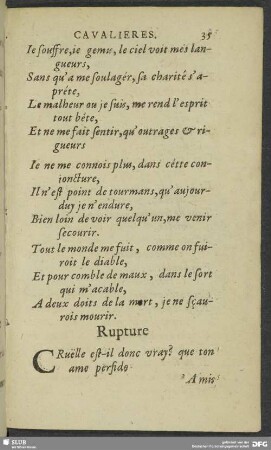 CAVALIERES. 35
Ie souffre, ie gemis, le ciel voit mes lan-
gueurs,
Sans qu'a me soulagér, sa charité s'a-
préte,
Le malheur ou je suis, me rend l'esprit
tout béte,
Et ne me fait sentir, qu'outrages & ri-
gueurs
Ie ne me connois plus, dans cétte con-
ioncture,
Il n'est point de tourmans, qu'aujour-
duy je n'endure,
Bien loin de voir quelqu'un, me venir
secourir.
Tout le monde me fuit, comme on fui-
roit le diable,
Et pour comble de maux, dans le sort
qui m'acable,
A deux doits de la mort, je ne sçau-
rois mourir.
Rupture
CRuëlle est-il donc vray? que ton
ame perfide
A mis
SLUB